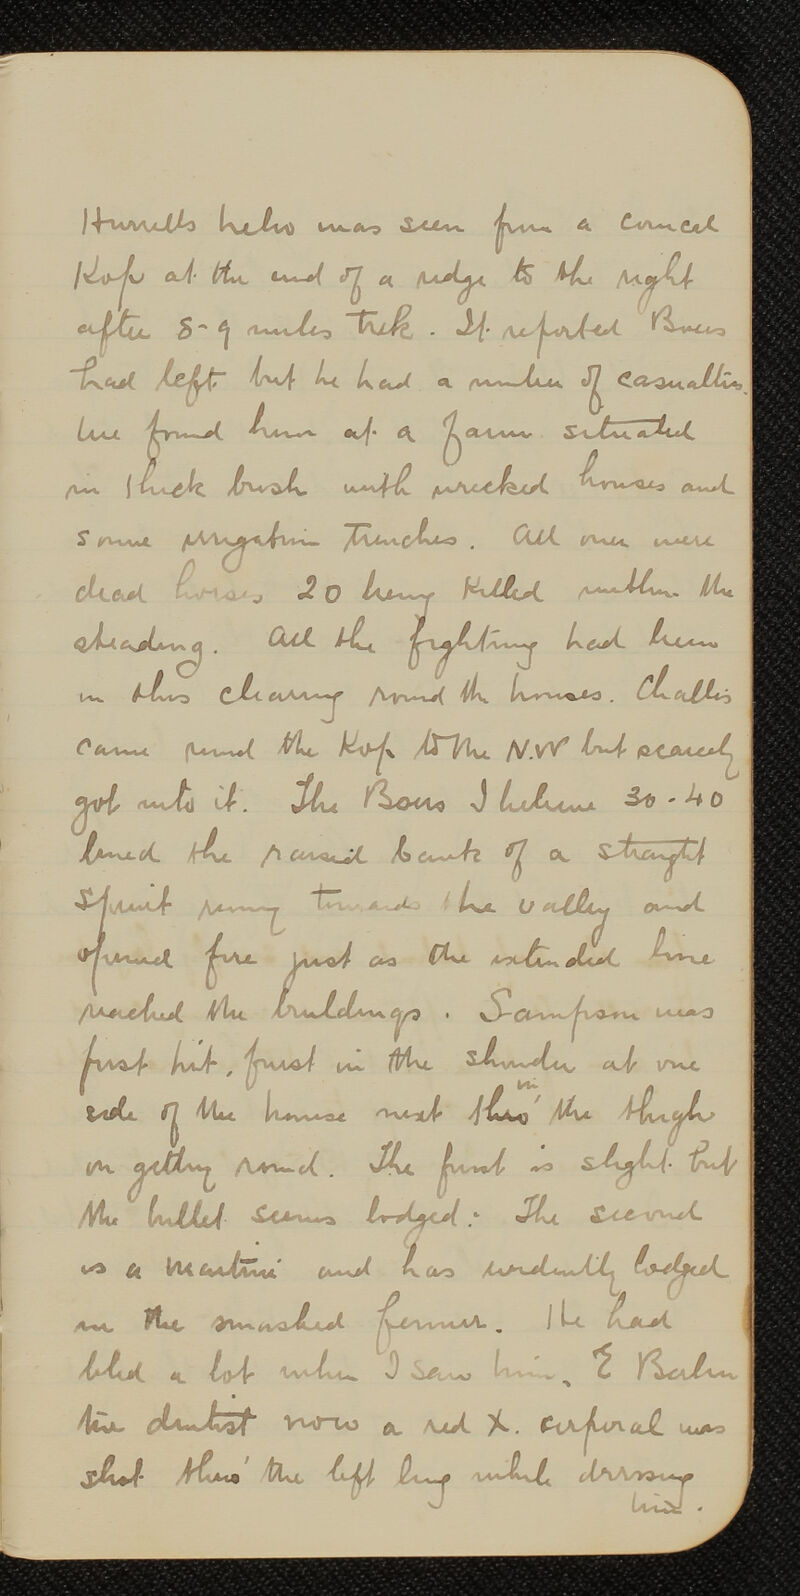 helio was seen from a conical
Kop at the end of a ridge to the right
after 8-9 miles trek. It reported Boers
had left but he had a number of casualties.
We found him at a farm situated
in thick bush with wrecked houses and
some irrigation trenches. All over were
dead horses 20 being killed within the
steading. All the fighting had been
in this clearing round the houses. Challis
came round the Kop to the N.W but scarcely
got into it. The Boers I believe 30-40
lined the raised bank of a straight
Spruit runing towards the valley and
opened fire just as the extended line
reached the buildings. Sampson was
first hit, first in the shoulder at one
side of the house next thro' in the thigh
on getting round. The first is slight but
the bullet seems lodged: The second
is a Martini and has evidently lodged
in the smashed femur. He had
bled a lot when I saw him. E
the dentist now a red X. corporal was
shot thro' the left leg while dressing
him.